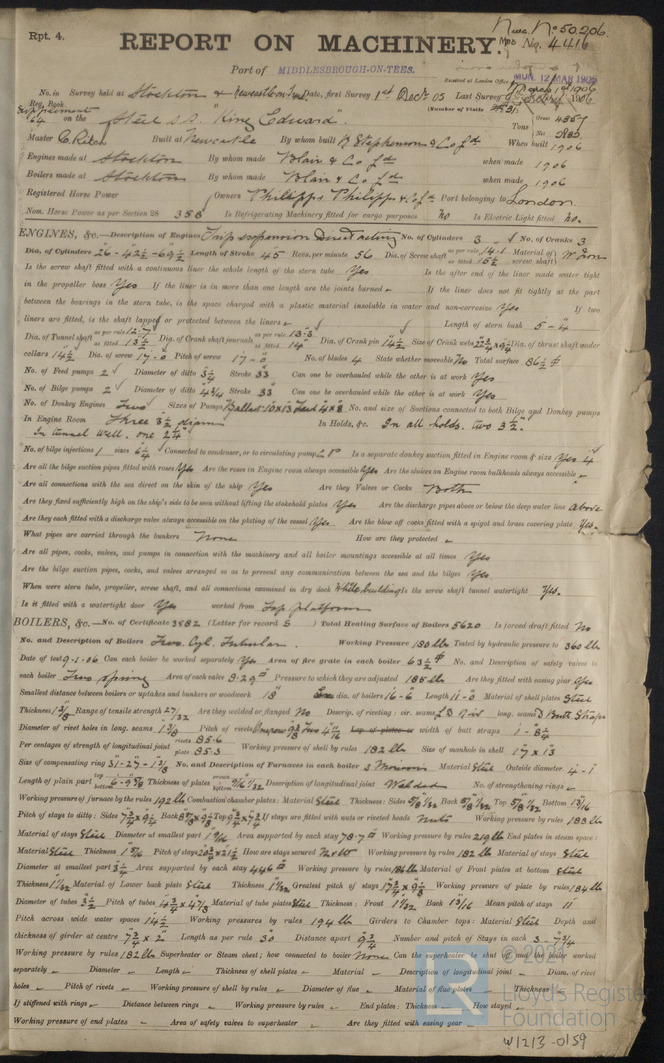 Rpt. 4.
Nwc. No 50206
REPORT ON MACHINERY.
Mbo No. 4416
Port of MIDDLESBROUGH-ON-TEES.
Received at London Office MON. 12 MAR 1906
No. in Survey held at Stockton & Newcastle on Tyne Date, first Survey 1st Decr 05 Last Survey 1906
Reg. Book.
(Number of Visits
Supplement
24 on the Steel S.S. "King Edward".
Tons Gross 4357
Net
Master C. Rider Built at Newcastle By whom built R Stephenson & Co Ld When built 1906
Engines made at Stockton By whom made Blair & Co Ld when made 1906
Boilers made at Stockton By whom made Blair & Co Ld when made 1906
Registered Horse Power Owners Philipps Philipps & Co Ld Port belonging to London
Nom. Horse Power as per Section 28 358 Is Refrigerating Machinery fitted for cargo purposes No Is Electric Light fitted No.
ENGINES, &c.—Description of Engines Trip expansion Direct acting No. of Cylinders 3 No. of Cranks 3
Dia. of Cylinders 26 - 42½ - 69½ Length of Stroke 45 Revs. per minute 56 Dia. of Screw shaft as per rule 14.1 as fitted 15½ Material of screw shaft W Iron
Is the screw shaft fitted with a continuous liner the whole length of the stern tube Yes Is the after end of the liner made water tight
in the propeller boss Yes If the liner is in more than one length are the joints burned If the liner does not fit tightly at the part
between the bearings in the stern tube, is the space charged with a plastic material insoluble in water and non-corrosive Yes If two
liners are fitted, is the shaft lapped or protected between the liners Length of stern bush 5 - 4
Dia. of Tunnel shaft as per rule 12.7 as fitted 13½ Dia. of Crank shaft journals as per rule 13.3 as fitted 14 Dia. of Crank pin 14½ Size of Crank webs Dia. of thrust shaft under
collars 14½ Dia. of screw 17 - 0 Pitch of screw 17 - 0 No. of blades 4 State whether moveable No Total surface 86½
No. of Feed pumps 2 Diameter of ditto 3¼ Stroke 33 Can one be overhauled while the other is at work Yes
No. of Bilge pumps 2 Diameter of ditto 4¾ Stroke 33 Can one be overhauled while the other is at work Yes
No. of Donkey Engines Two Sizes of Pumps Ballast 10 x 13 Feed 4 x 8 No. and size of Suctions connected to both Bilge and Donkey pumps
In Engine Room Three 3½ diam In Holds, &c. In all holds. two 3½"
In tunnel well, one 2¼
No. of bilge injections 1 sizes 6¼ Connected to condenser, or to circulating pump C P Is a separate donkey suction fitted in Engine room & size Yes 4
Are all the bilge suction pipes fitted with roses Yes Are the roses in Engine room always accessible Yes Are the sluices on Engine room bulkheads always accessible
Are all connections with the sea direct on the skin of the ship Yes Are they Valves or Cocks Both
Are they fixed sufficiently high on the ship's side to be seen without lifting the stokehold plates Yes Are the discharge pipes above or below the deep water line above
Are they each fitted with a discharge valve always accessible on the plating of the vessel Yes Are the blow off cocks fitted with a spigot and brass covering plate Yes.
What pipes are carried through the bunkers None How are they protected
Are all pipes, cocks, valves, and pumps in connection with the machinery and all boiler mountings accessible at all times Yes
Are the bilge suction pipes, cocks, and valves arranged so as to prevent any communication between the sea and the bilges Yes
When were stern tube, propeller, screw shaft, and all connections examined in dry dock While building Is the screw shaft tunnel watertight Yes.
Is it fitted with a watertight door Yes worked from Top platform
BOILERS, &c.—No. of Certificate 3582 (Letter for record S) Total Heating Surface of Boilers 5620 Is forced draft fitted No
No. and Description of Boilers Two Cyl. Tubular. Working Pressure 180 lb Tested by hydraulic pressure to 360 lb
Date of test 9-1-06 Can each boiler be worked separately Yes Area of fire grate in each boiler 63½ No. and Description of safety valves to
each boiler Two Spring Area of each valve 8.29 Pressure to which they are adjusted 185 lb Are they fitted with easing gear Yes
Smallest distance between boilers or uptakes and bunkers or woodwork 18" dia. of boilers 16 - 6 Length 11 - 0 Material of shell plates Steel
Thickness Range of tensile strength 27/32 Are they welded or flanged No Descrip. of riveting: cir. seams L D Riv long. seams D Butt Straps
Diameter of rivet holes in long. seams Pitch of rivets Lap of plates or width of butt straps 1 - 8½
Per centages of strength of longitudinal joint rivets 85.6 plate 85.3 Working pressure of shell by rules 182 lb Size of manhole in shell 17 x 13
Size of compensating ring No. and Description of Furnaces in each boiler 3 Morison Material Steel Outside diameter 4 - 1
Length of plain part top bottom Thickness of plates crown bottom Description of longitudinal joint Welded No. of strengthening rings
Working pressure of furnace by the rules 192 lb Combustion chamber plates: Material Steel Thickness: Sides Back Top Bottom
Pitch of stays to ditto: Sides Back Top If stays are fitted with nuts or riveted heads Nuts Working pressure by rules 183 lb
Material of stays Steel Diameter at smallest part Area supported by each stay 78.7 Working pressure by rules 219 lb End plates in steam space:
Material Steel Thickness Pitch of stays How are stays secured N & W Working pressure by rules 182 lb Material of stays Steel
Diameter at smallest part 3¼ Area supported by each stay 446 Working pressure by rules 186 lb Material of Front plates at bottom Steel
Thickness Material of Lower back plate Steel Thickness Greatest pitch of stays Working pressure of plate by rules 184 lb
Diameter of tubes 3½ Pitch of tubes Material of tube plates Steel Thickness: Front Back Mean pitch of stays 11
Pitch across wide water spaces 14½ Working pressures by rules 194 lb Girders to Chamber tops: Material Steel Depth and
thickness of girder at centre Length as per rule 30 Distance apart 9¾ Number and pitch of Stays in each 3 - 7¾
Working pressure by rules 182 lb Superheater or Steam chest; how connected to boiler None Can the superheater be shut off and the boiler worked
separately Diameter Length Thickness of shell plates Material Description of longitudinal joint Diam. of rivet
holes Pitch of rivets Working pressure of shell by rules Diameter of flue Material of flue plates Thickness
If stiffened with rings Distance between rings Working pressure by rules End plates: Thickness How stayed
Working pressure of end plates Area of safety valves to superheater Are they fitted with easing gear
© 2021
LR
Lloyd's Register
Foundation
W1213-0159